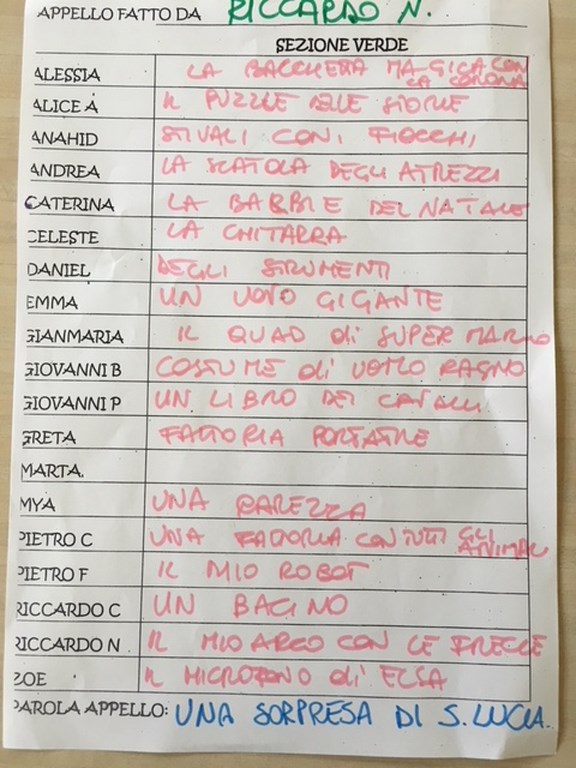 APPELLO FATTO DA RICCARDO N.
SEZIONE VERDE
ALESSIA LA BACCHETTA MAGICA CON
LA CORONA
ALICE A IL PUZZLE DELLE STORIE
ANAHID STIVALI CON I FIOCCHI
ANDREA LA SCATOLA DEGLI ATREZZI
CATERINA LA BARBIE DEL NATALE
CELESTE LA CHITARRA
DANIEL DEGLI STRUMENTI
EMMA UN UOVO GIGANTE
GIANMARIA IL QUAD di SUPER MARIO
GIOVANNI B COSTUME di UOMO RAGNO
GIOVANNI P UN LIBRO DEI CAVALLI
GRETA FATTORIA PORTATILE
MARTA.
MYA UNA CAREZZA
PIETRO C UNA FATTORIA CON TUTTI GLI
ANIMALI
PIETRO F IL MIO ROBOT
RICCARDO C UN BACINO
RICCARDO N IL MIO ARCO CON LE FRECCE
ZOE IL MICROFONO di ELSA
PAROLA APPELLO: UNA SORPRESA DI S. LUCIA.